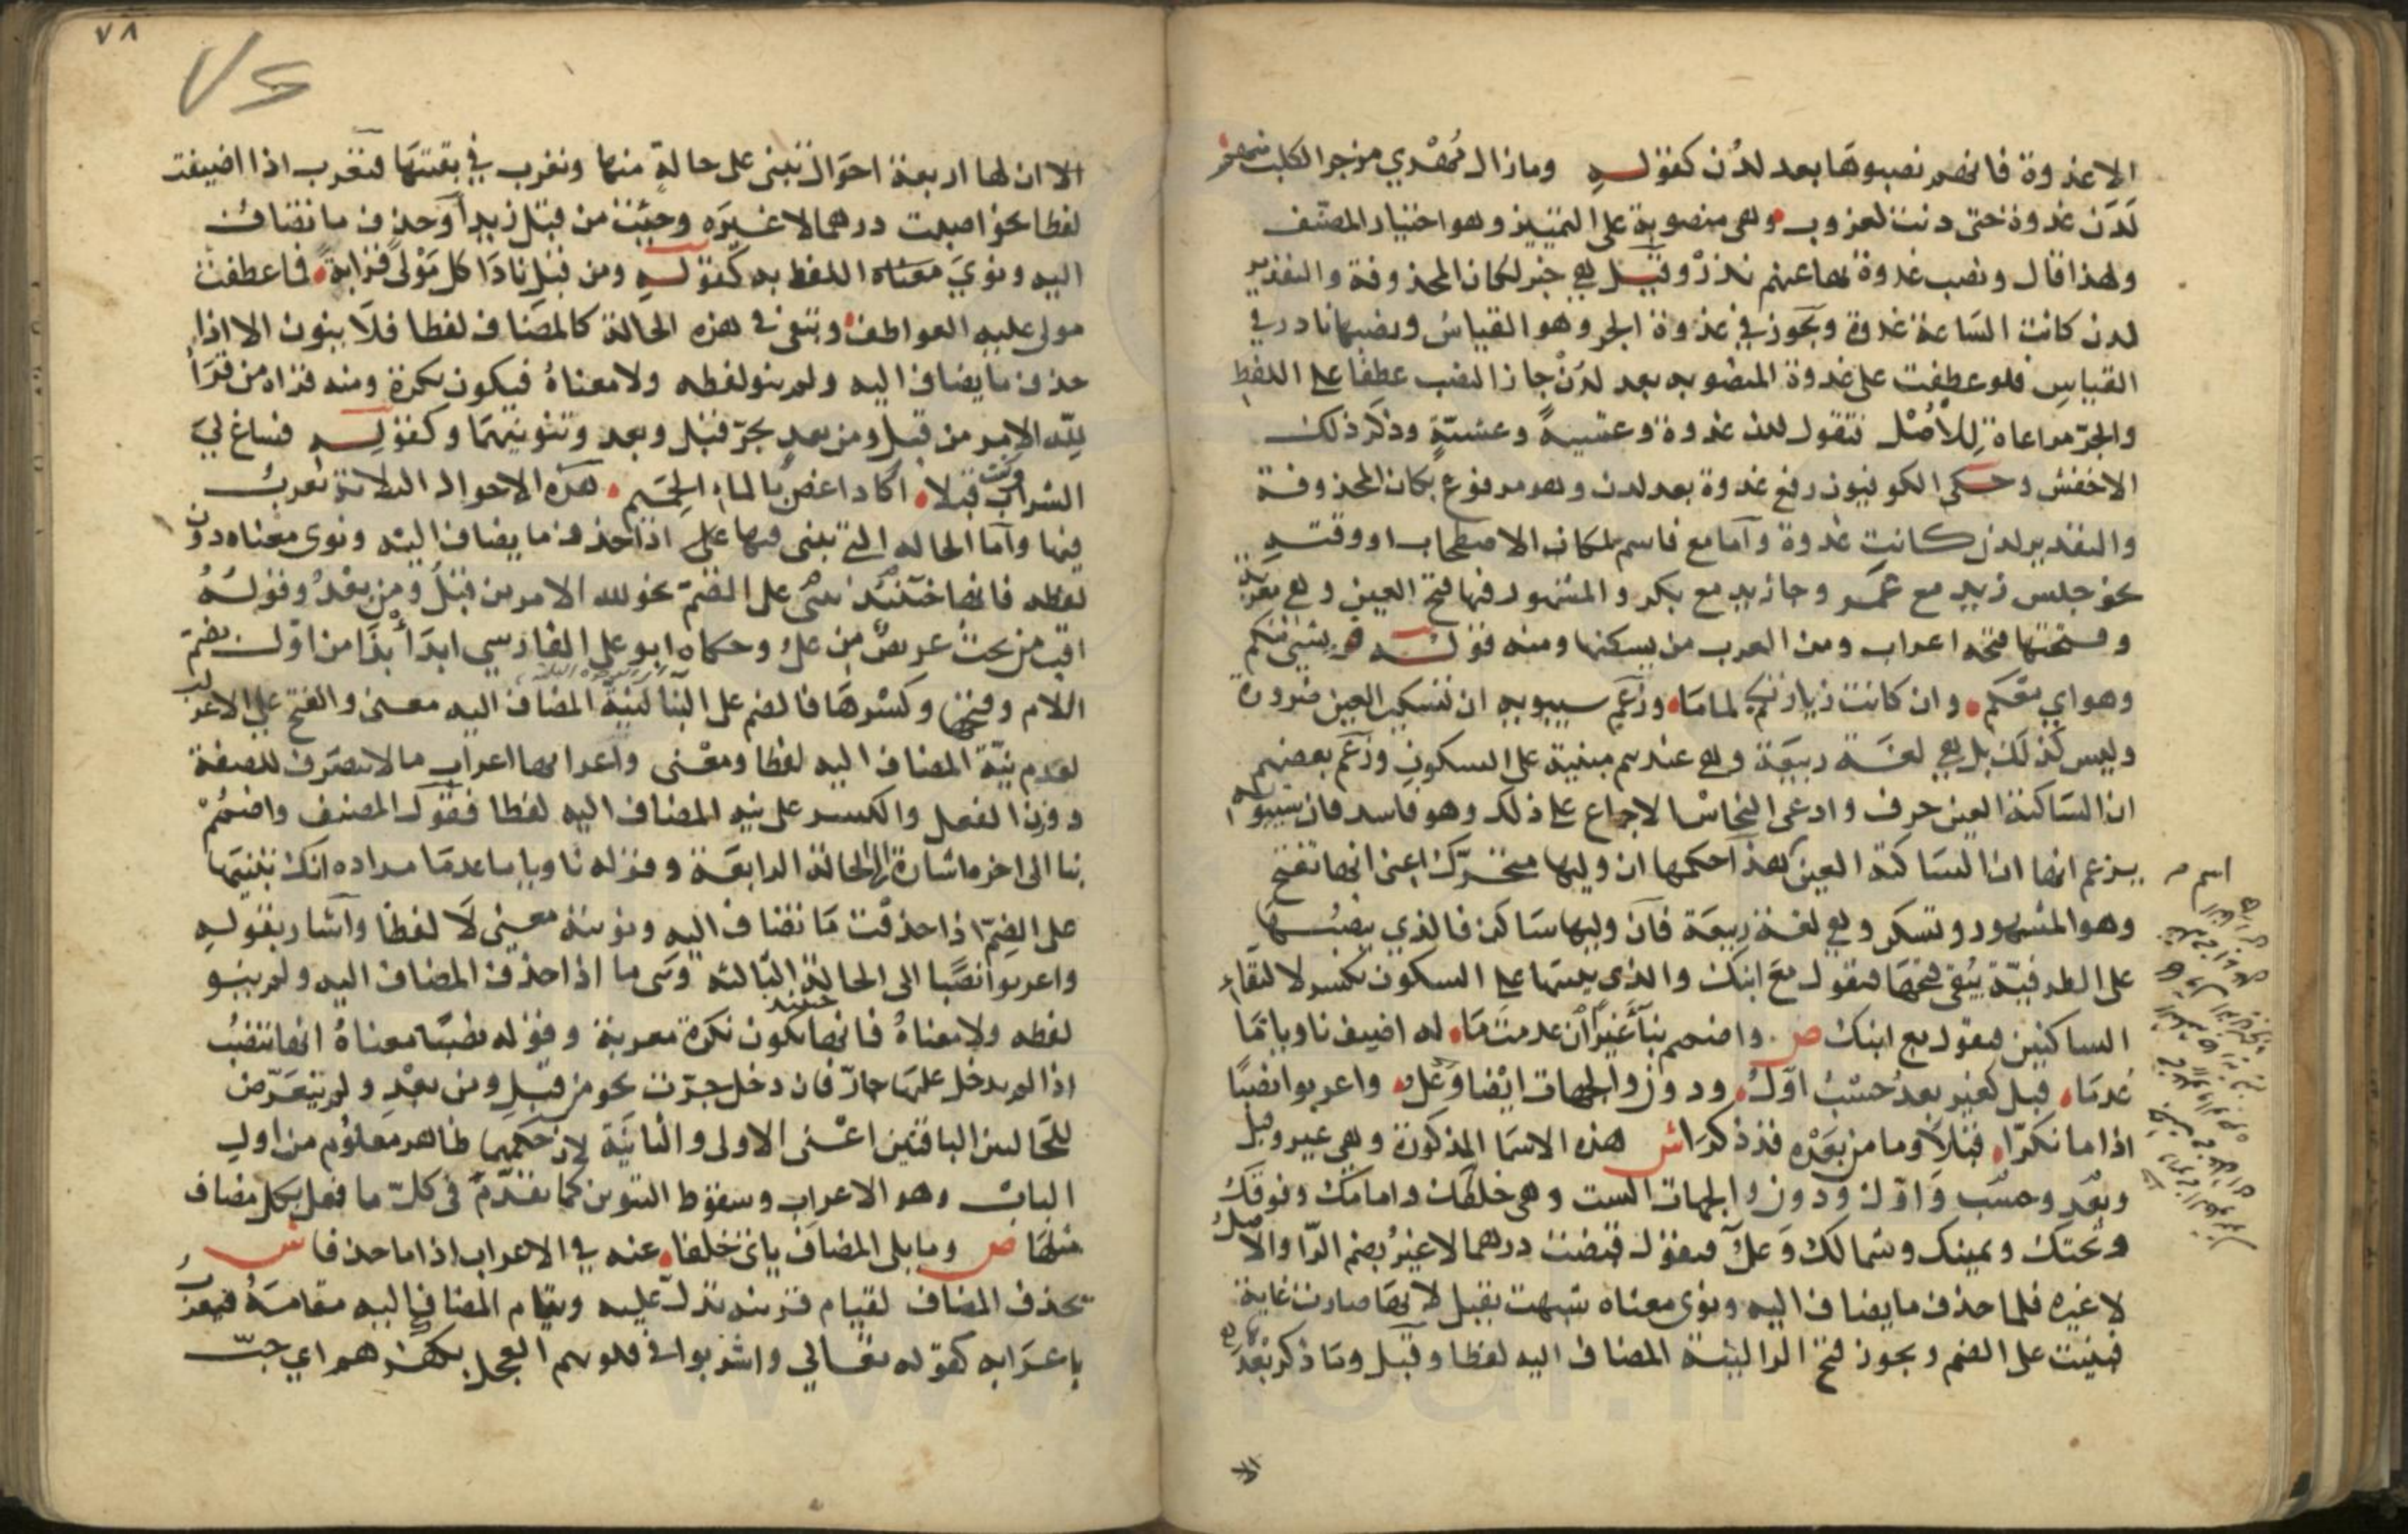 الا غدوة فانهم نصبوها بعد لدن كقوله وما زال مهري مزجر الكلب منهم
لدن غدوة حتى دنت لغروب وهي منصوبة على التمييز وهو اختيار المصنف
ولهذا قال ونصب غدوة بها عنهم ندر وقيل هي خبر لكان المحذوفة والتقدير
لدن كانت الساعة غدوة ويجوز في غدوة الجر وهو القياس ونصبها نادر في
القياس فلو عطفت على غدوة المنصوبه بعد لدن جاز النصب عطفا على اللفظ
والجر مراعاة للأصل فتقول لدن غدوة وعشية وعشية وذكر ذلك
الاخفش وحكى الكوفيون رفع غدوة بعد لدن وهو مرفوع بكان المحذوفة
والتقدير لدن كانت غدوة واما مع فاسم لمكان الاصطحاب او وقته
نحو جلس زيد مع عمر وجا زيد مع بكر والمشهور فيها فتح العين وهي معربة
وفتحتها فتحه اعراب ومن العرب من يسكنها ومنه قوله فريشي منكم
وهواي معكم وان كانت زيارتكم لماما وزعم سيبويه ان تسكين العين ضرورة
وليس كذلك بل هي لغة ربيعة وهي عندهم مبنية على السكون وزعم بعضهم
ان الساكنة العين حرف وادعى النحاس الاجماع على ذلك وهو فاسد فان سيبويه
يزعم انها ان الساكنة العين اسم هذا حكمها ان وليها متحرك اعني انها تفتح
وهو المشهور وتسكن وهي لغة ربيعة فان وليها ساكن فالذي ينصبها
على الظرفية يبقي فتحها فتقول مع ابنك والذي يبنيها على السكون يكسر لالتقاء
الساكنين فيقول مع ابنك ص واضمم بنا غيرا ان عدمت ما له اضيف ناويا ما
عدما قبل كغير بعد حسب اول ودون والجهات ايضا وعل واعربوا نصبا
اذا ما نكرا قبلا وما من بعده قد ذكرا ش هذه الاسما المذكورة وهي غير وقبل
وبعد وحسب واول ودون والجهات الست وهي خلفك وامامك وفوقك
وتحتك ويمينك وشمالك وعل فتقول قبضت درهما لا غير بضم الرا والاصل
لا غيره فلما حذف ما يضاف اليه ونوي معناه شبهت بقبل لانها صارت غاية
فبنيت على الضم ويجوز فتح الرا لنية المضاف اليه لفظا وقبل وما ذكر بعد
الا
٧٨
الا ان لها اربعة احوال تبنى على حالة منها وتعرب في بقيتها فتعرب اذا اضيفت
لفظا نحو اصبت درهما لا غيره وجئت من قبل زيد او حذف ما تضاف
اليه ونوي معناه اللفظ به كقوله ومن قبل نادا كل مولى قرابة فما عطفت
مولى عليه العواطف وتبقى في هذه الحالة كالمضاف لفظا فلا ينون الا اذا
حذف ما يضاف اليه ولم ينو لفظه ولا معناه فيكون نكرة ومنه قراة من قرأ
لله الامر من قبل ومن بعد بجر قبل وبعد وتنوينهما وكقوله فساغ لي
الشراب وكنت قبلا اكاد اغص بالماء الحميم هذه الاحوال الثلاثة تعرب
فيها واما الحاله التي تبنى فيها على اذا حذف ما يضاف اليه ونوى معناه دون
لفظه فانها حينئذ تبنى على الضم نحو لله الامر من قبل ومن بعد وقوله
اقب من تحت عريض من عل وحكاه ابو علي الفارسي ابدأ بذا من اول بضم
اللام وفتحها وكسرها فالضم على البنا لنية المضاف اليه معنى والفتح على الاعراب
لعدم نية المضاف اليه لفظا ومعنى واعرابها اعراب ما لا ينصرف للصفة
ووزن الفعل والكسر على نية المضاف اليه لفظا فقول المصنف واضمم
بنا الى اخره اشارة الى الحالة الرابعة وقوله ناويا ما عدما مراده انك تبنيها
على الضم اذا حذفت ما تضاف اليه ونويته معنى لا لفظا واشار بقوله
واعربوا نصبا الى الحالة الثالثه وهي ما اذا حذف المضاف اليه ولم ينو
لفظه ولا معناه فانها حينئذ تكون نكرة معربة وقوله نصبا معناه انها تنصب
اذا لم يدخل عليها جار فان دخل جرت نحو من قبل ومن بعد ولم يتعرض
للحالتين الباقيتين اعني الاولى والثانية لان حكمهما ظاهر معلوم من اول
الباب وهو الاعراب وسقوط التنوين كما تقدم في كل ما فعل بكل مضاف
مثلها ص وما يلي المضاف ياتي خلفا عنه في الاعراب اذا ما حذفا ش
يحذف المضاف لقيام قرينه تدل عليه ويقام المضاف اليه مقامه فيعرب
باعرابه كقوله تعالي واشربوا في قلوبهم العجل بكفرهم اي حب